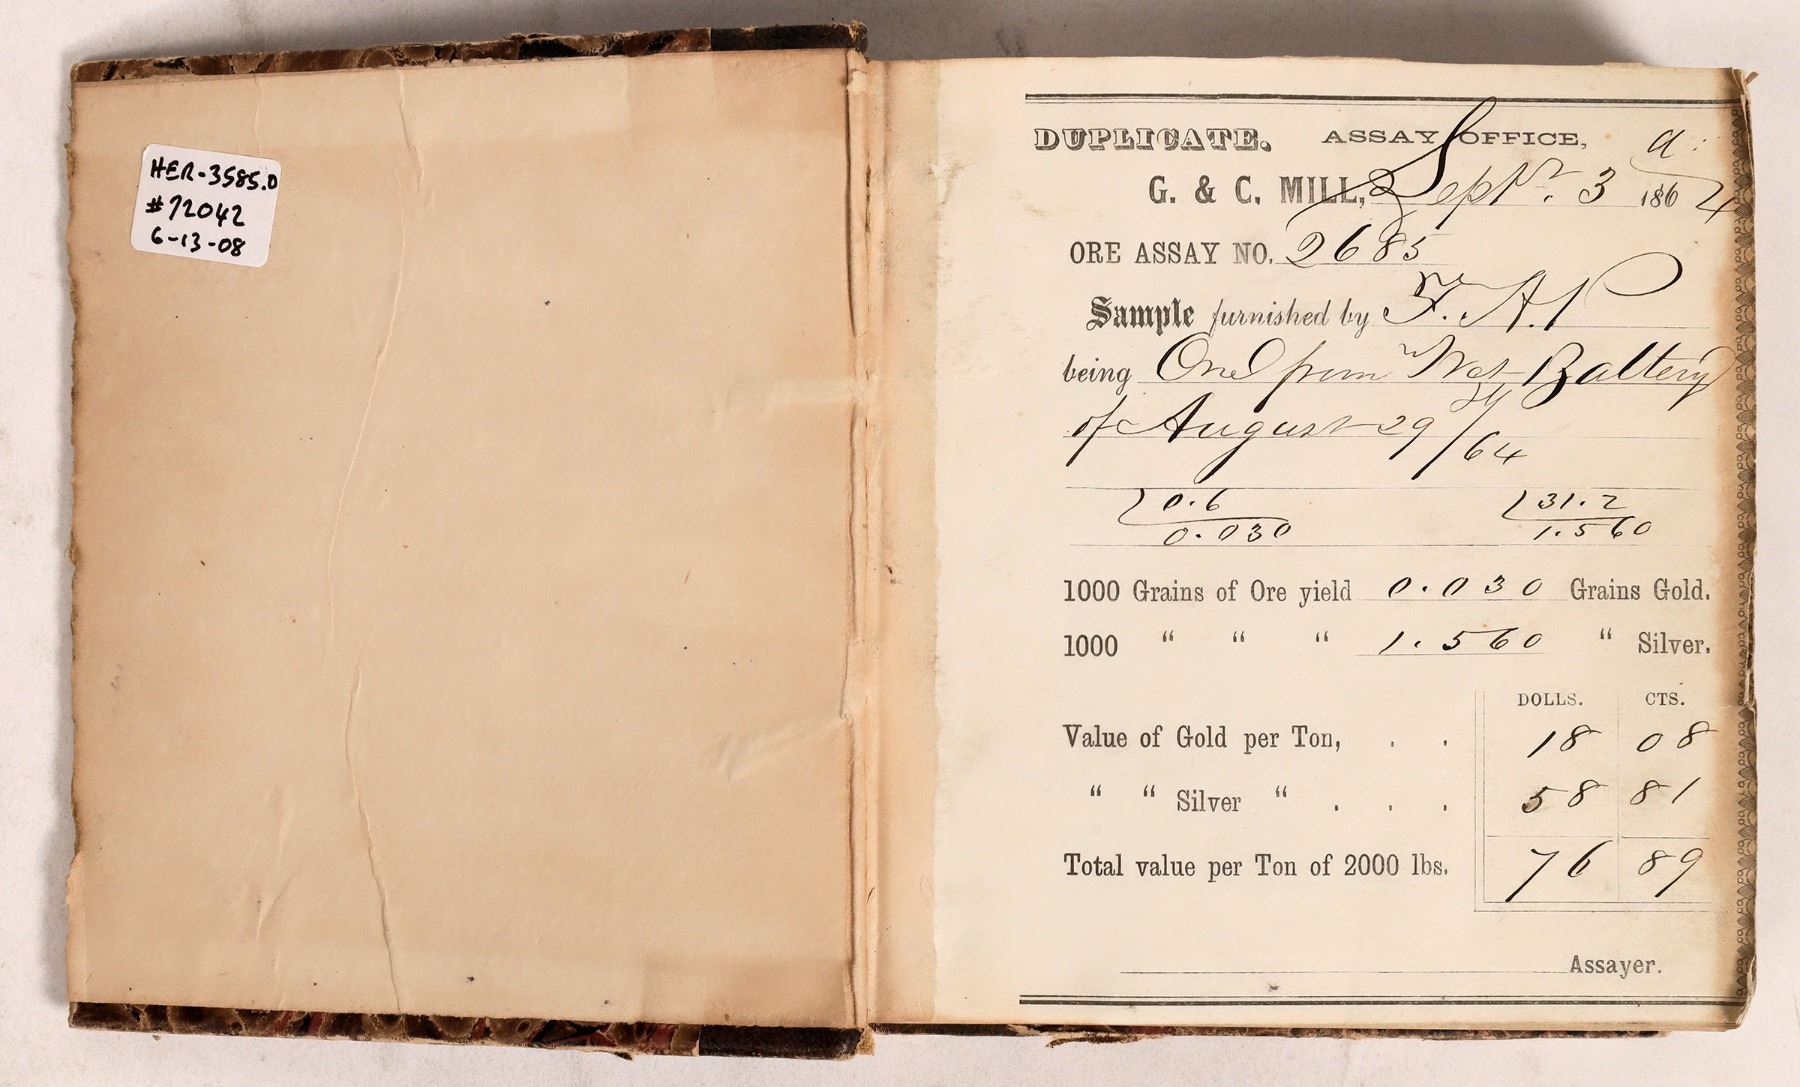 HER-3585.0
#72042
6-13-08
DUPLICATE. ASSAY OFFICE,
G. & C. MILL, Septr. 3 1864
ORE ASSAY NO. 2685
Sample furnished by F. A. P
being One from Wet Battery
of August 29/64
0.6 31.2
0.030 1.560
1000 Grains of Ore yield 0.030 Grains Gold.
1000 " " " 1.560 " Silver.
DOLLS. CTS.
Value of Gold per Ton, . . 18 08
" " Silver " . . . 58 81
Total value per Ton of 2000 lbs. 76 89
Assayer.